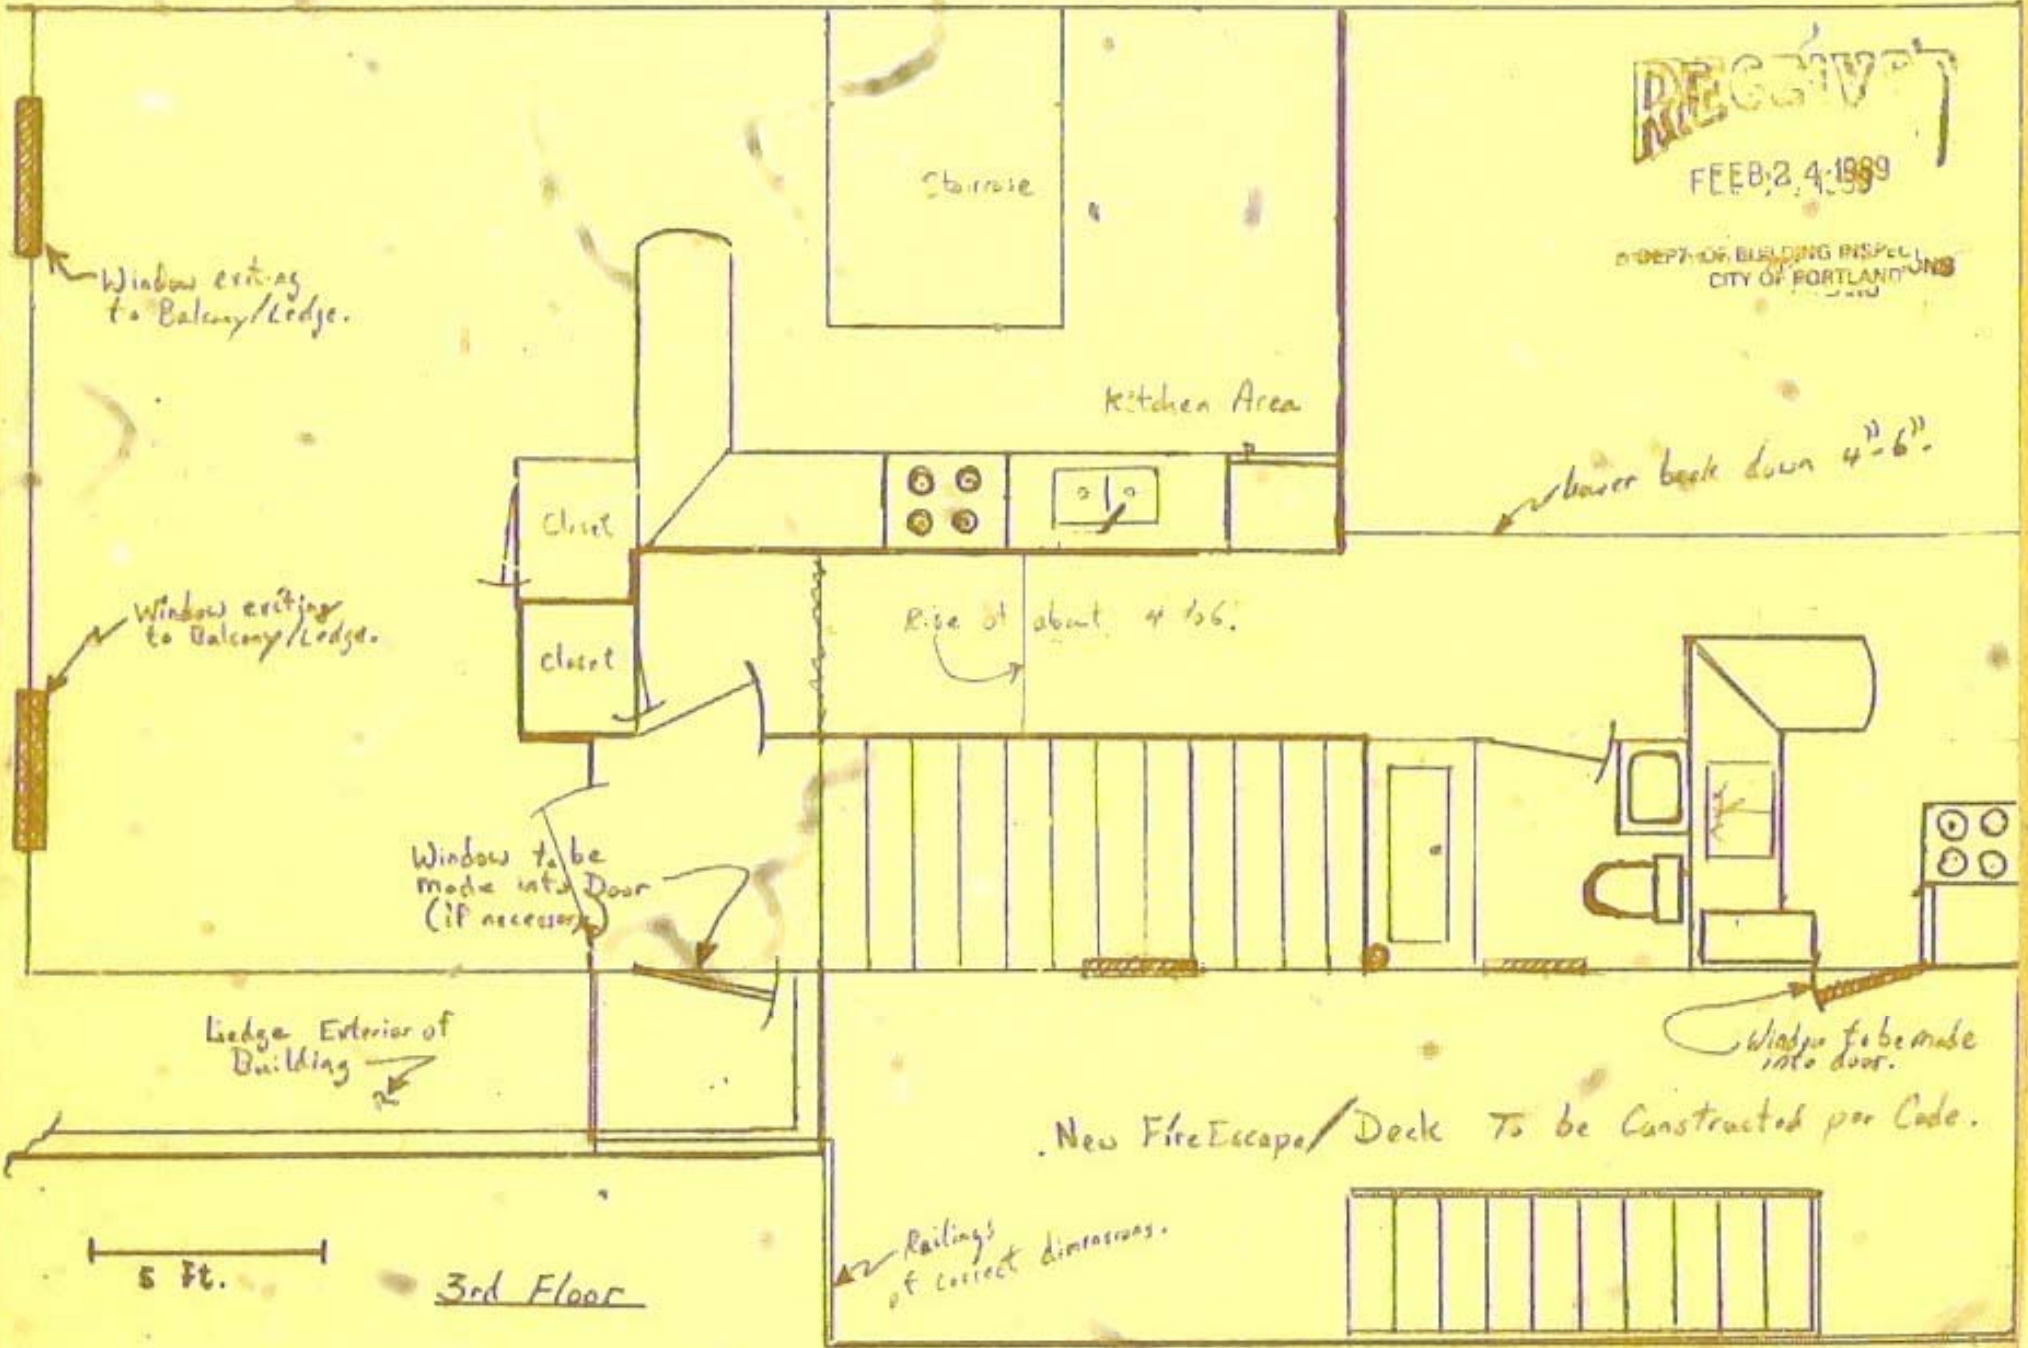 RECEIVED
FEB 24 1989
DEPT. OF BUILDING INSPECTIONS
CITY OF PORTLAND
Staircase
Window exiting
to Balcony/Ledge.
Kitchen Area
Lower back down 4"-6".
Closet
Closet
Window exiting
to Balcony/Ledge.
Rise of about 4 to 6.
Window to be
made into Door
(if necessary)
Ledge Exterior of
Building
Window to be made
into door.
New Fire Escape/Deck To be Constructed per Code.
Railings
of correct dimensions.
5 Ft.
3rd Floor